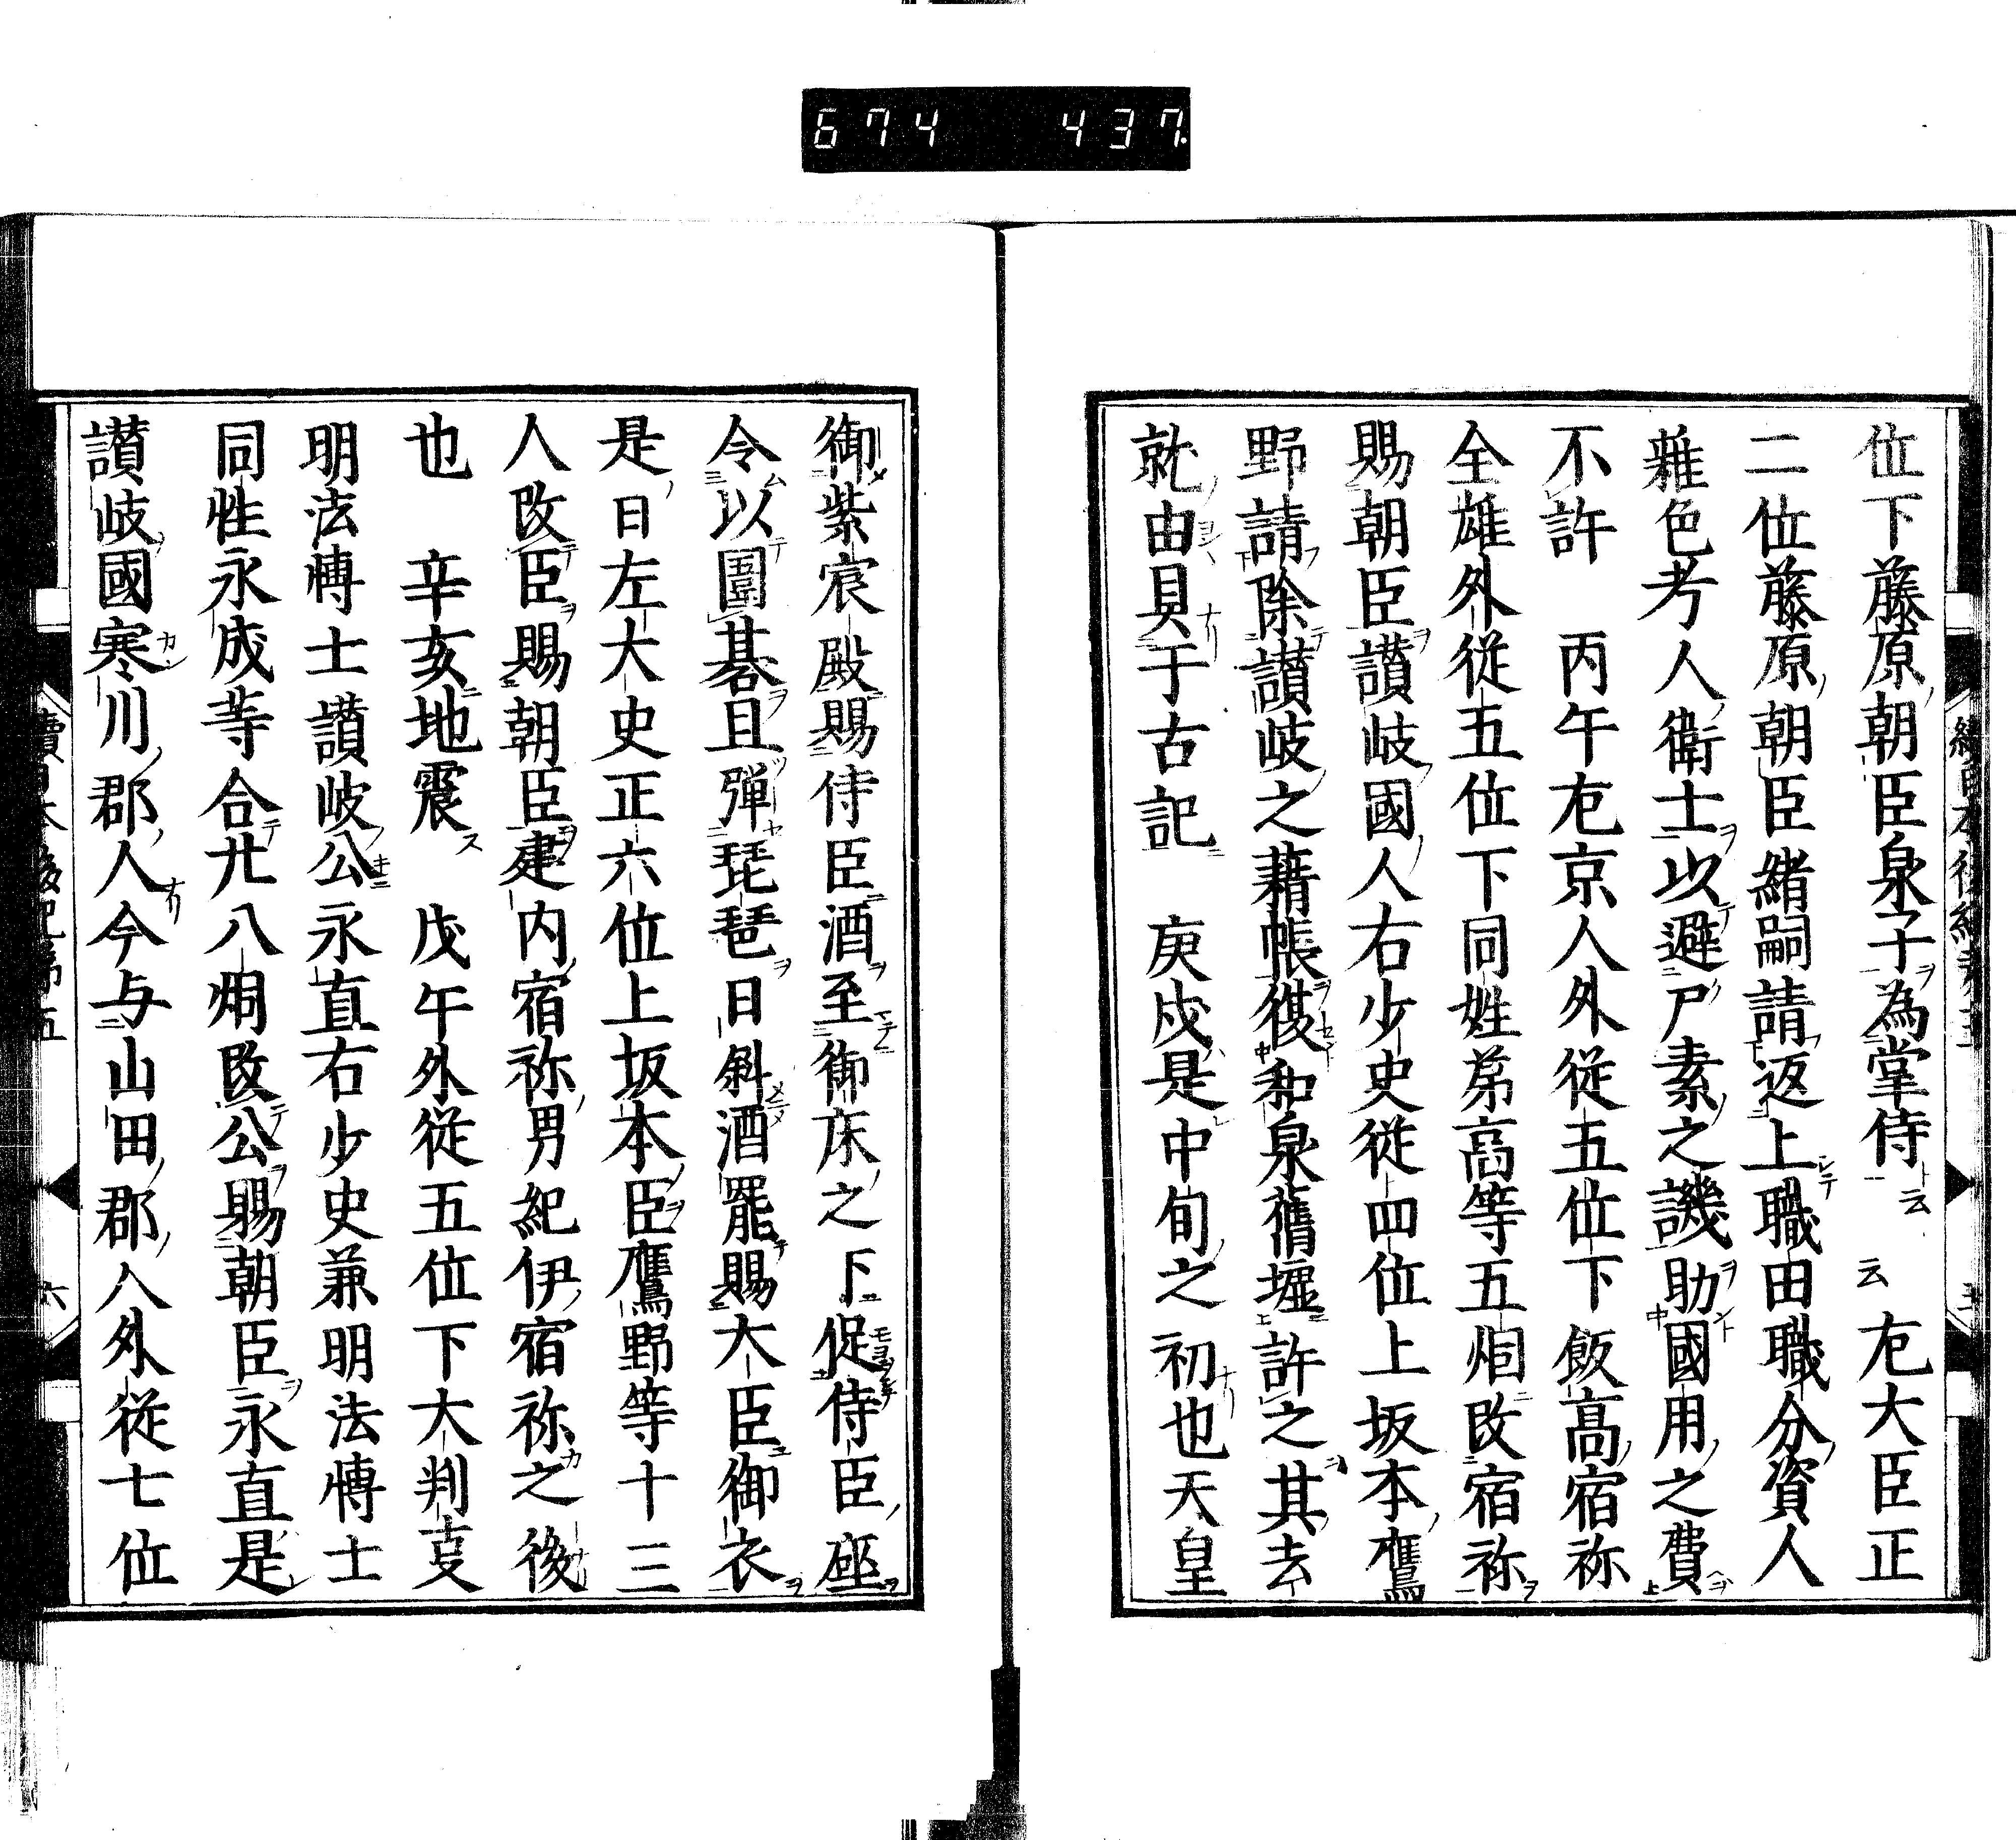 674 437.
位下藤原朝臣泉子為掌侍云云左大臣正
二位藤原朝臣緒嗣請返上職田職分資人
雜色考人衛士以避尸素之譏助國用之費
不許 丙午左京人外從五位下飯高宿祢
全雄外從五位下同姓弟高等五烟改宿祢
賜朝臣讃岐國人右少史從四位上坂本鷹
野請除讃岐之藉帳復和泉舊墟許之其去
就由具于古記 庚戌是中旬之初也天皇
御紫宸殿賜侍臣酒至御床之下促侍臣座
令以圍碁且彈琵琶日斜酒罷賜大臣御衣
是日左大史正六位上坂本臣鷹野等十三
人改臣賜朝臣建内宿祢男紀伊宿祢之後
也 辛亥地震 戊午外從五位下大判亊
明法博士讃岐公永直右少史兼明法博士
同姓永成等合廿八烟改公賜朝臣永直是
讃岐國寒川郡人今与山田郡人外從七位
續日本後紀第五 六